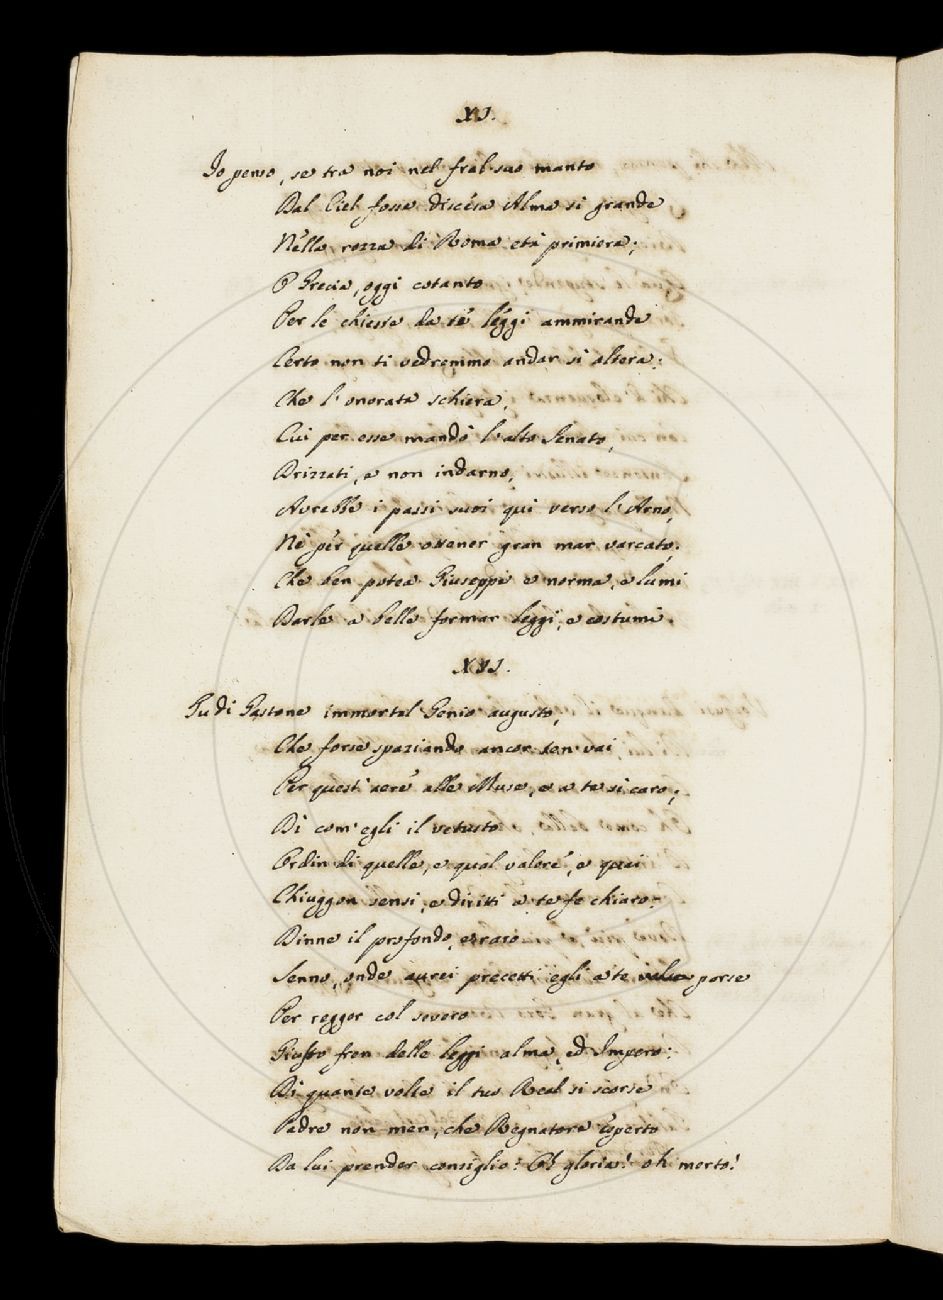 XI.
Io penso, se tra noi nel fral suo manto
Dal Ciel fosse discésa Alma sì grande
Nella rozza di Roma età primiera;
O Grecia, oggi cotanto
Per le chieste da té léggi ammirande
Certo non ti vedremmo andar sì altera:
Che l'onorata schiera,
Cui per esse mandò l'alto Senato,
Drizzati, e non indarno,
Avrebbe i passi suoi qui verso l'Arno,
Nè pér quelle ottener gran mar varcato.
Che ben potea Giuseppe e norma, e lumi
Darle a belle formar leggi, e costumi.
XII.
Tu di Gastone immortal Genio augusto,
Che forse spaziando ancor ten vai
Per questi aere alle Muse, e a te sì caro;
Dì com'egli il vetusto
Ordin di quelle, e qual valore, e quai
Chiuggon sensi, e diritti a te fe chiaro:
Dinne il profondo, e raro
Senno, onde aurei precetti egli a te porse
Per regger col severo
Giusto fren delle leggi alma, ed Impero:
Dì quante volte il tuo Real si scorse
Padre non men, che Regnatore esperto
Da lui prender consiglio: Oh gloria! oh merto!